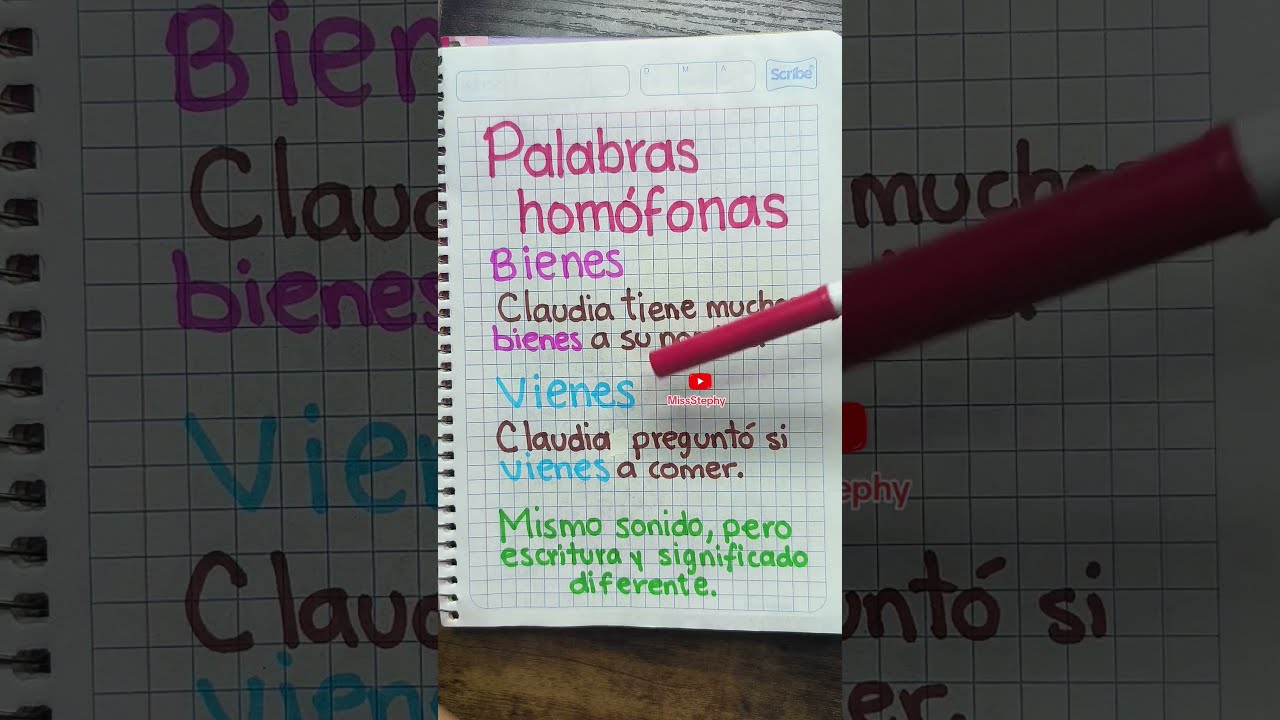 D M A
Scribe
Palabras
homófonas
Bienes
Claudia tiene
bienes a su
Vienes
MissStephy
Claudia preguntó si
vienes a comer.
Mismo sonido, pero
escritura y significado
diferente.